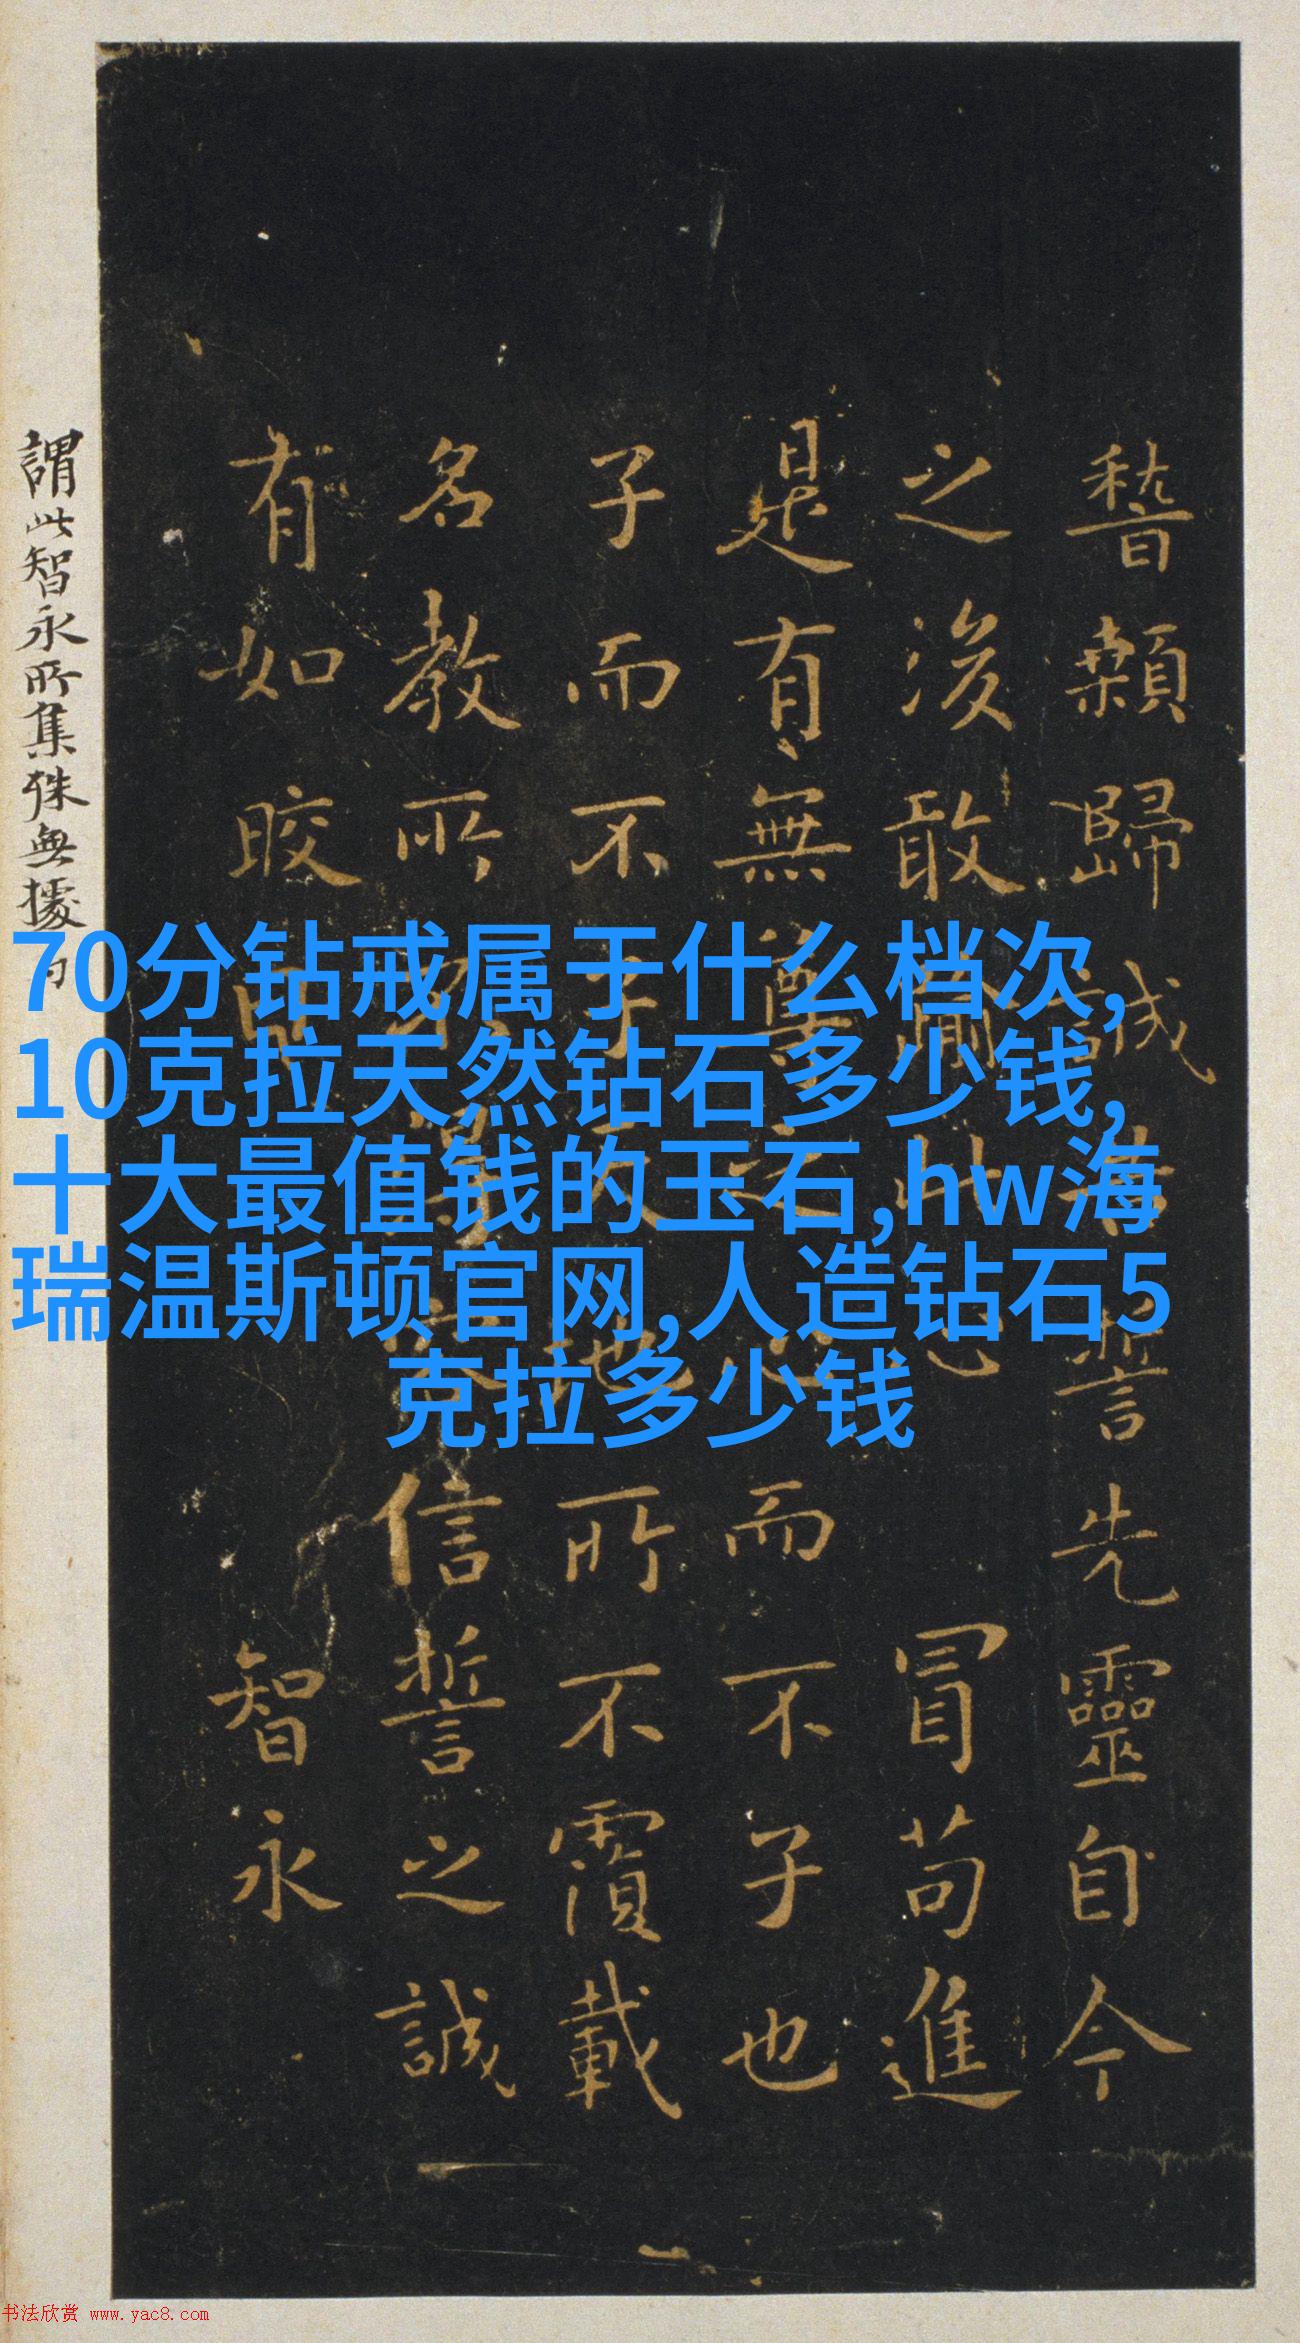 稽顙歸誠告誓先靈自今
之後敢渝此心冒苟進
是有無尊之心而不子也
子而不子天地所不覆載
名教所不得容信誓之誠
有如晈日智永
謂此智永所集殊無據
70分钻戒属于什么档次,
10克拉天然钻石多少钱,
十大最值钱的玉石,hw海
瑞温斯顿官网,人造钻石5
克拉多少钱
书法欣赏 www.yac8.com